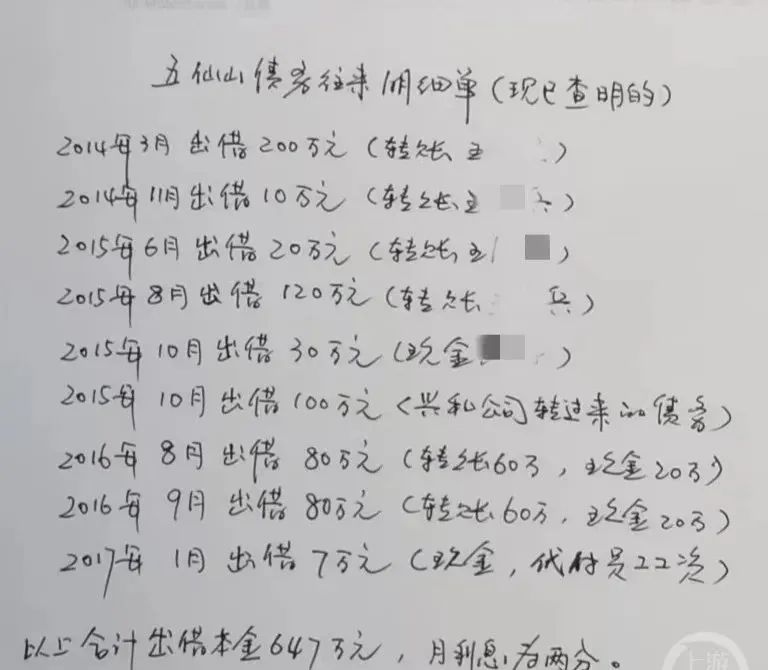 五仙山债务往来明细单(现已查明的)
2014年3月 出借 200万元 (转账,王 )
2014年11月 出借 10万元 (转账,王 兵)
2015年6月 出借 20万元 (转账,王 )
2015年8月 出借 120万元 (转账, 兵)
2015年10月 出借 30万元 (现金 )
2015年10月 出借 100万元 (兴和公司转过来的债务)
2016年 8月 出借 80万元 (转账60万,现金20万)
2016年 9月 出借 80万元 (转账60万,现金20万)
2017年 1月 出借 7万元 (现金,代付员工工资)
以上合计出借本金647万元,月利息为两分。
上游